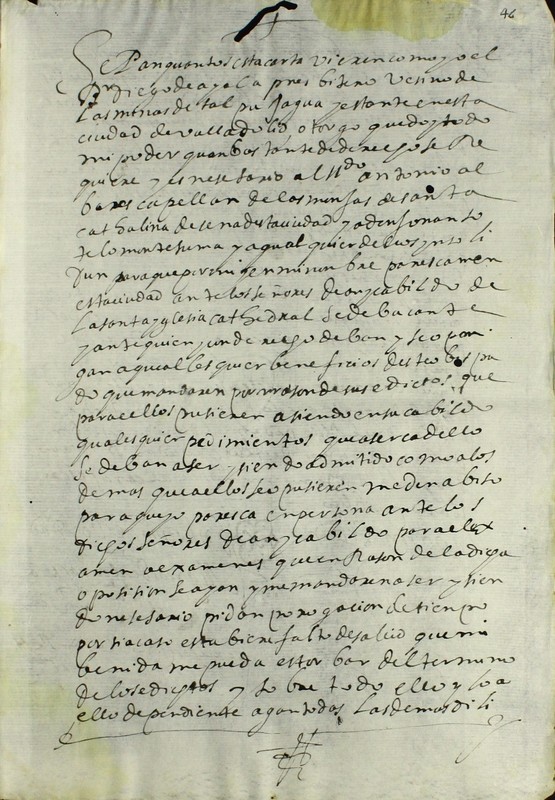 46
Sepan quantos esta carta vieren como yo el
Br diego de ayala presbitero Vesino de
Las minas de talpujagua y estante en esta
ciudad de valladolid otorgo que doy todo
mi poder quan bastante de derecho se Re
quiere y es nesesario al lldo antonio al
bares capellan de las monjas de santa
cathalina de sena desta ciudad y a don fonanto
telo montesuma y a qualquier dellos ynsoli
dun para que por mi y en mi nonbre parescan en
esta ciudad ante los señores dean y cabildo de
La santa yglesia cathedral sede bacante
y ante quien con derecho deban y se opon
gan a qualesquier beneficios deste obispa
do que mandaren por rason de sus edictos que
para ellos pusieren asiendo en su cabildo
qualesquier pedimientos que aserca dello
se deban aser y siendo admitido como a los
demas que a ellos se opusieren me den abiso
para que yo paresca en persona ante los
dichos señores dean y cabildo para el ex
amen o examenes que en Rason de la dicha
oposision se ayan y me mandaren aser y sien
do nesesario pidan prorogacion de tienpo
por si acaso estubiere falto de salud que mi
benida me pueda estorbar del termino
de los edictos y sobre todo ello y lo a
ello dependiente agan todas las demas dili